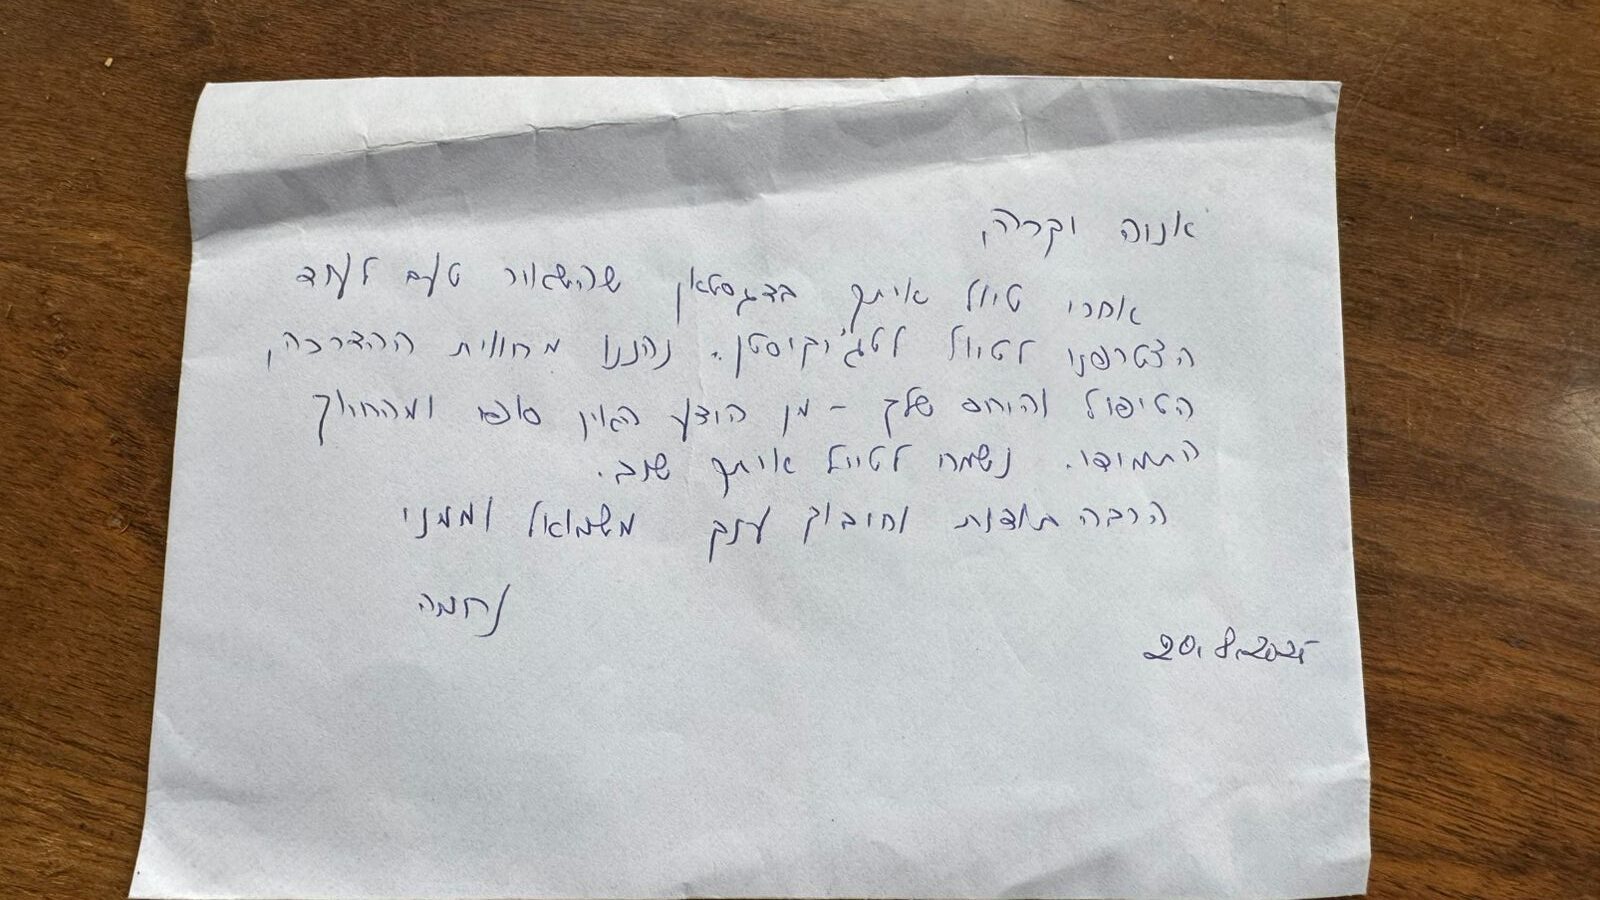 אנוה וקרה,
אחרי טיול איתך בדגסטאן שהשאיר טעם לעוד
הצטרפנו לטיול לטג'יקיסטן. נהננו מחווית ההדרכה,
הטיפול והיחס שלך - מן הידע האין סופי ומהחיוך
התמידי. נשמח לטייל איתך שוב.
הרבה תודות וחיבוק ענק משמואל וממני
נחמה
20.8.2025